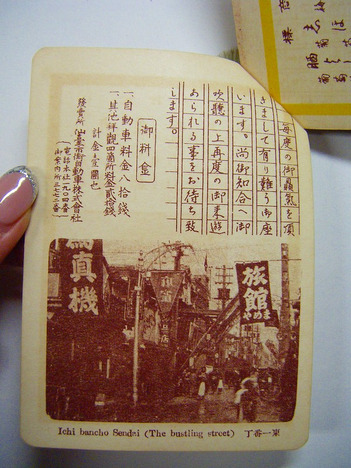 毎度の御贔屓を頂
きまして有り難う御座
います。尚御知合へ御
吹聴の上再度の御来遊
あられる事をお待ち致
します。
御料金
一自動車料金八拾銭
一其他拝観四箇所料金貳拾銭
計金壹圓也
發賣所 仙臺市街自動車株式會社
(電話本社一九〇四番
御案内所三七七二番)
旅館
寫真機
Ichi bancho Sendai (The bustling street) 丁番一東